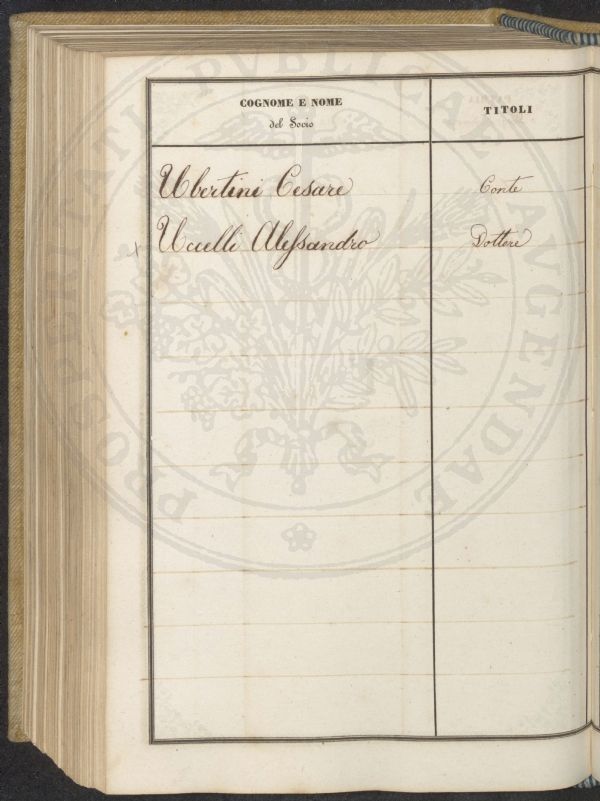 COGNOME E NOME
del Socio
TITOLI
Ubertini Cesare
Conte
x Uccelli Alessandro
Dottore
PROSPERITATI PUBLICAE AUGENDAE